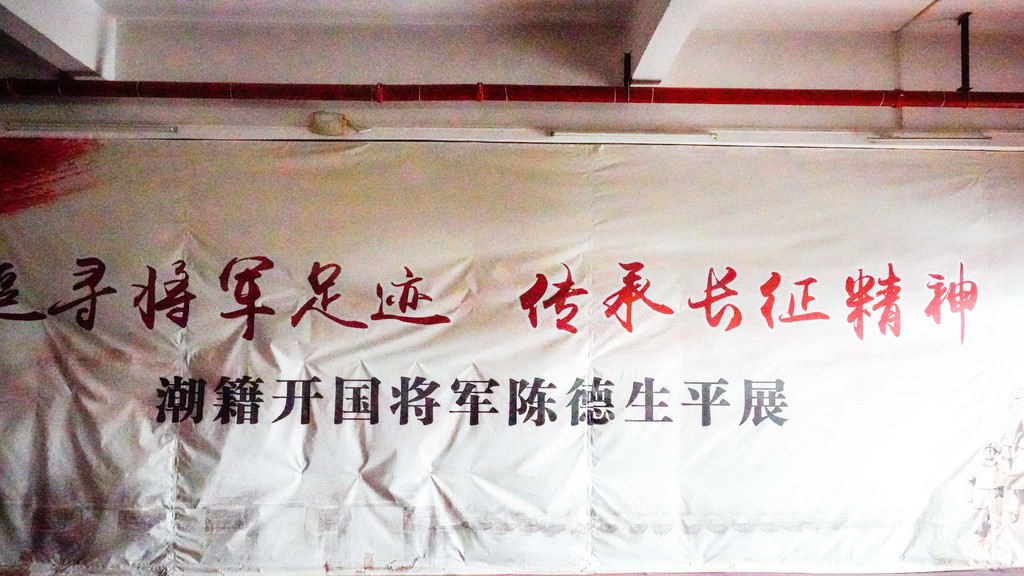 追寻将军足迹 传承长征精神
潮籍开国将军陈德生平展